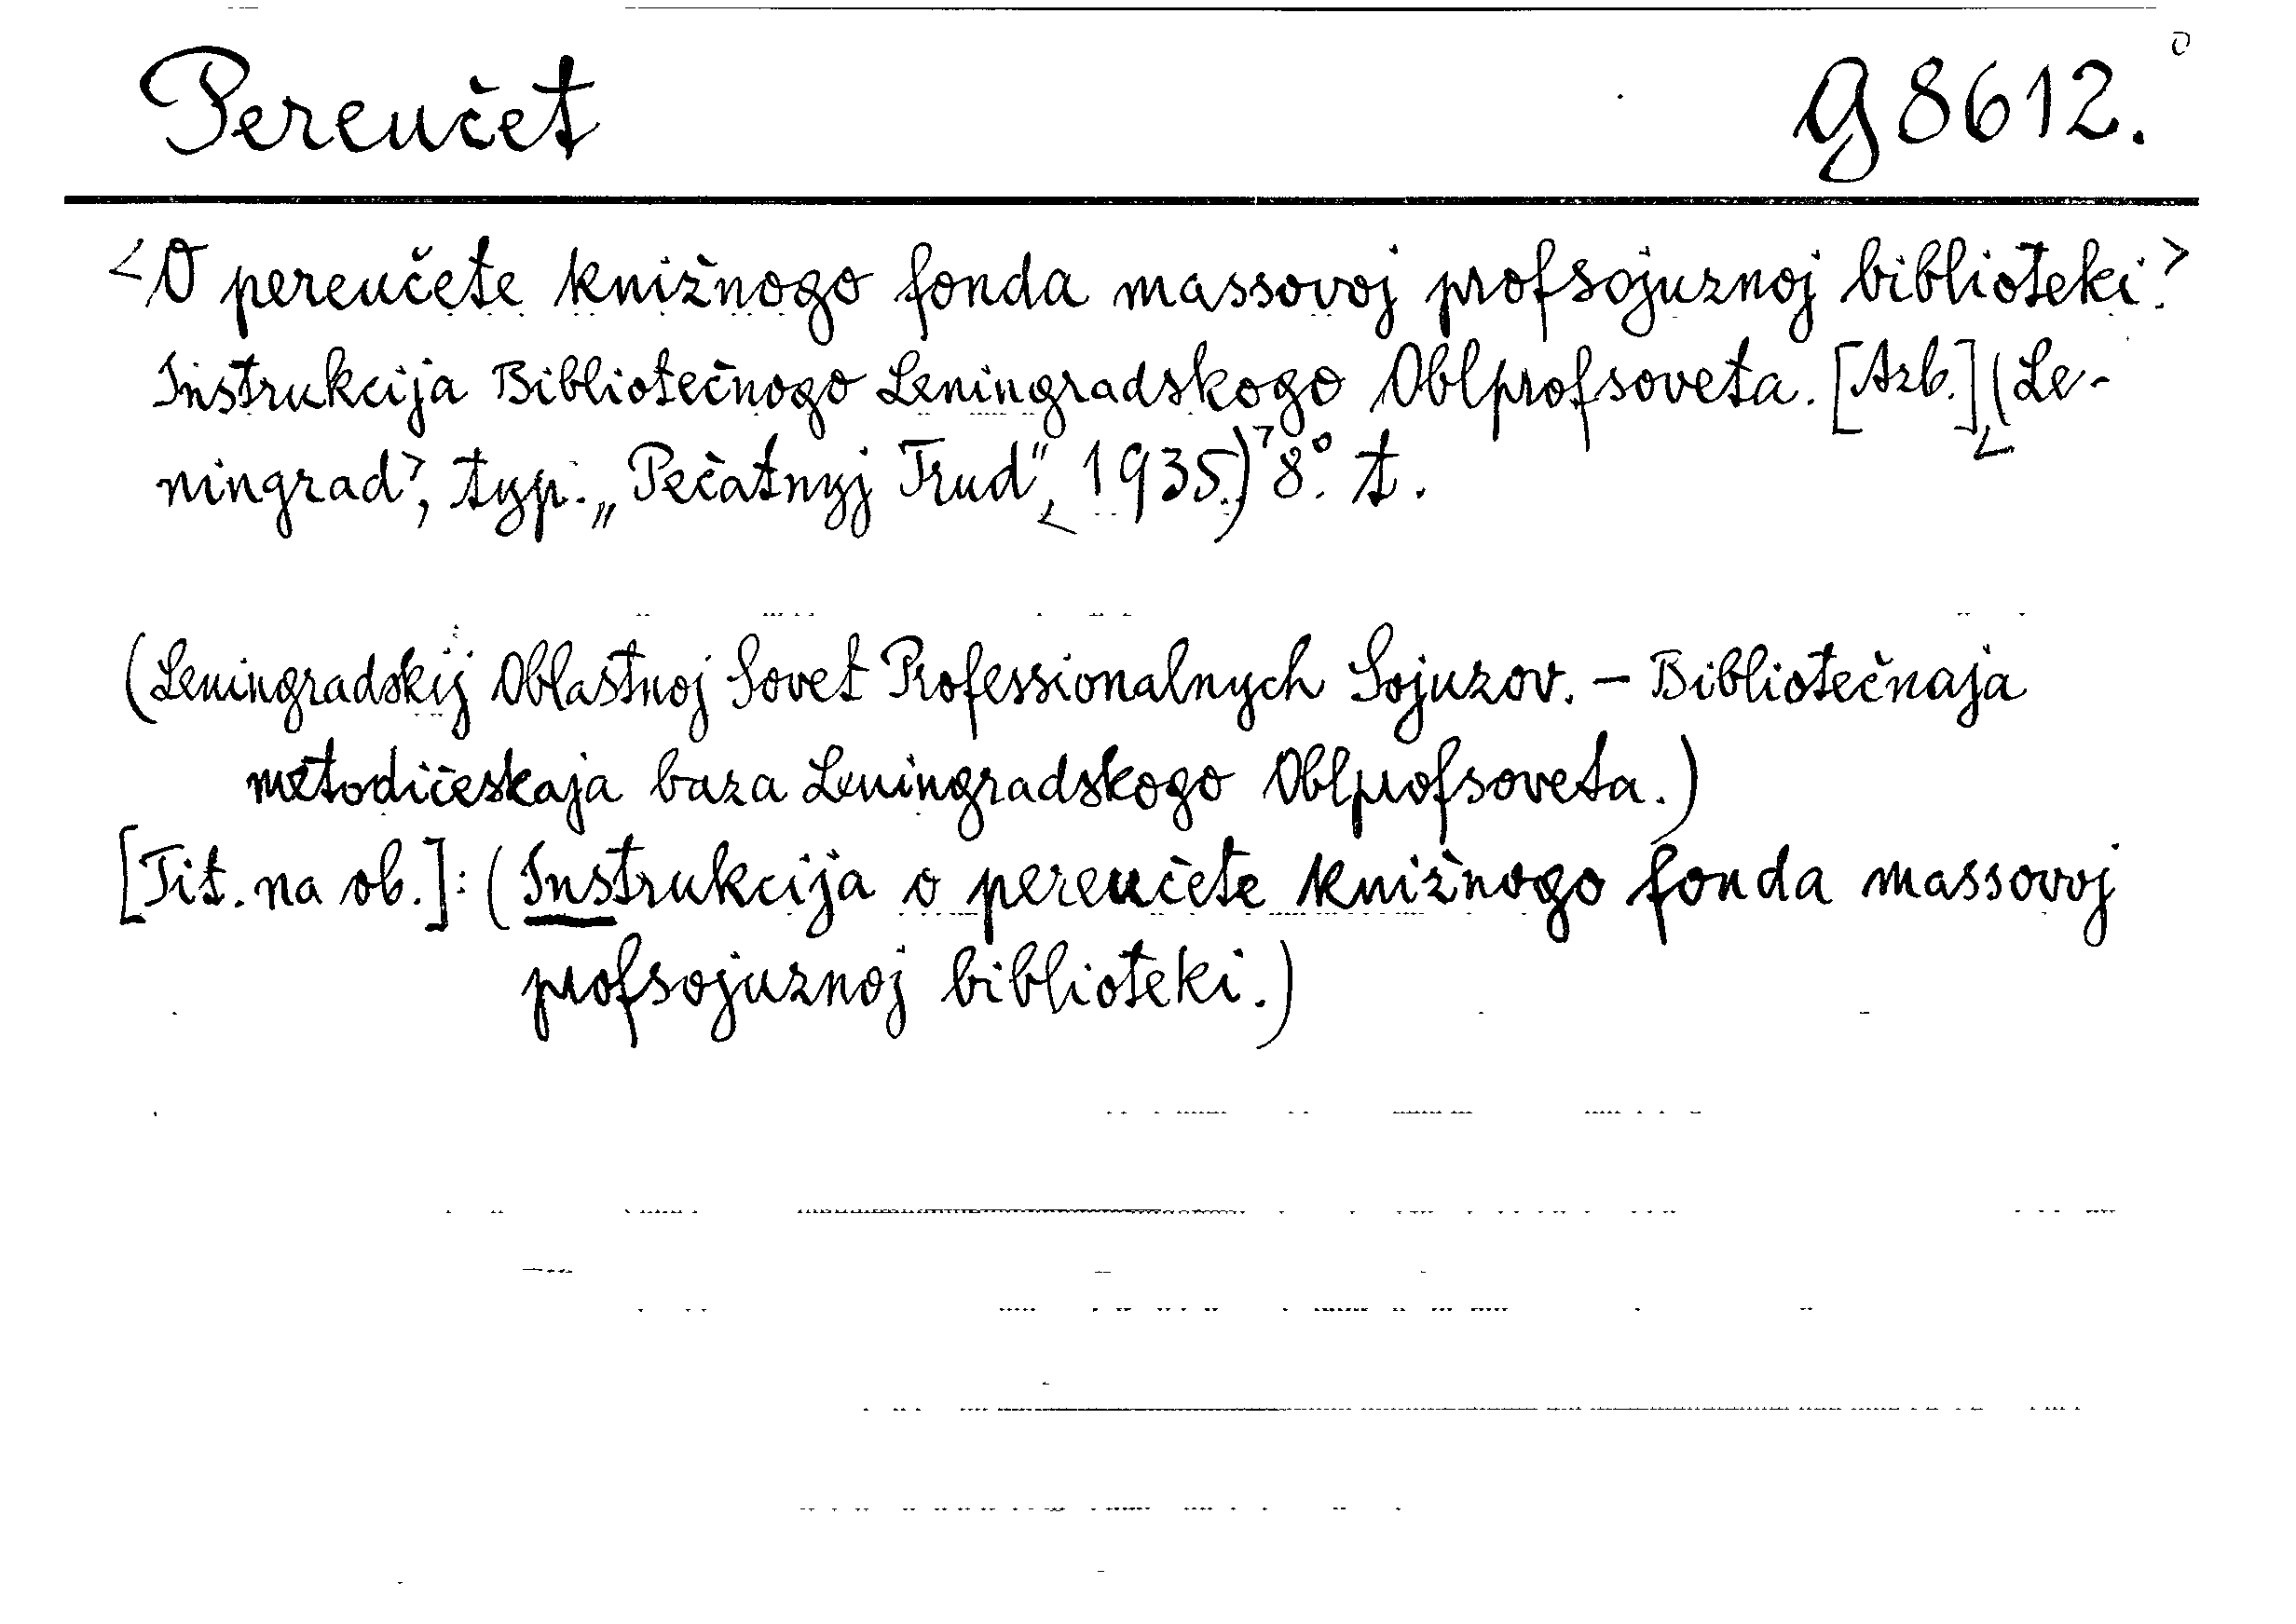 Pereučet G 8612.
<O pereučete knižnogo fonda massovoj profsojuznoj biblioteki.>
Instrukcija Bibliotečnogo Leningradskogo Oblprofsoveta. [Azb.] (<Le-
ningrad>, typ. „Pečatnyj Trud", <1935.)> 8°. t.
(Leningradskij Oblastnoj Sovet Professionalnych Sojuzov. – Bibliotečnaja
metodičeskaja baza Leningradskogo Oblprofsoveta.)
[Tit. na ob.]: (Instrukcija o pereučete knižnogo fonda massovoj
profsojuznoj biblioteki.)